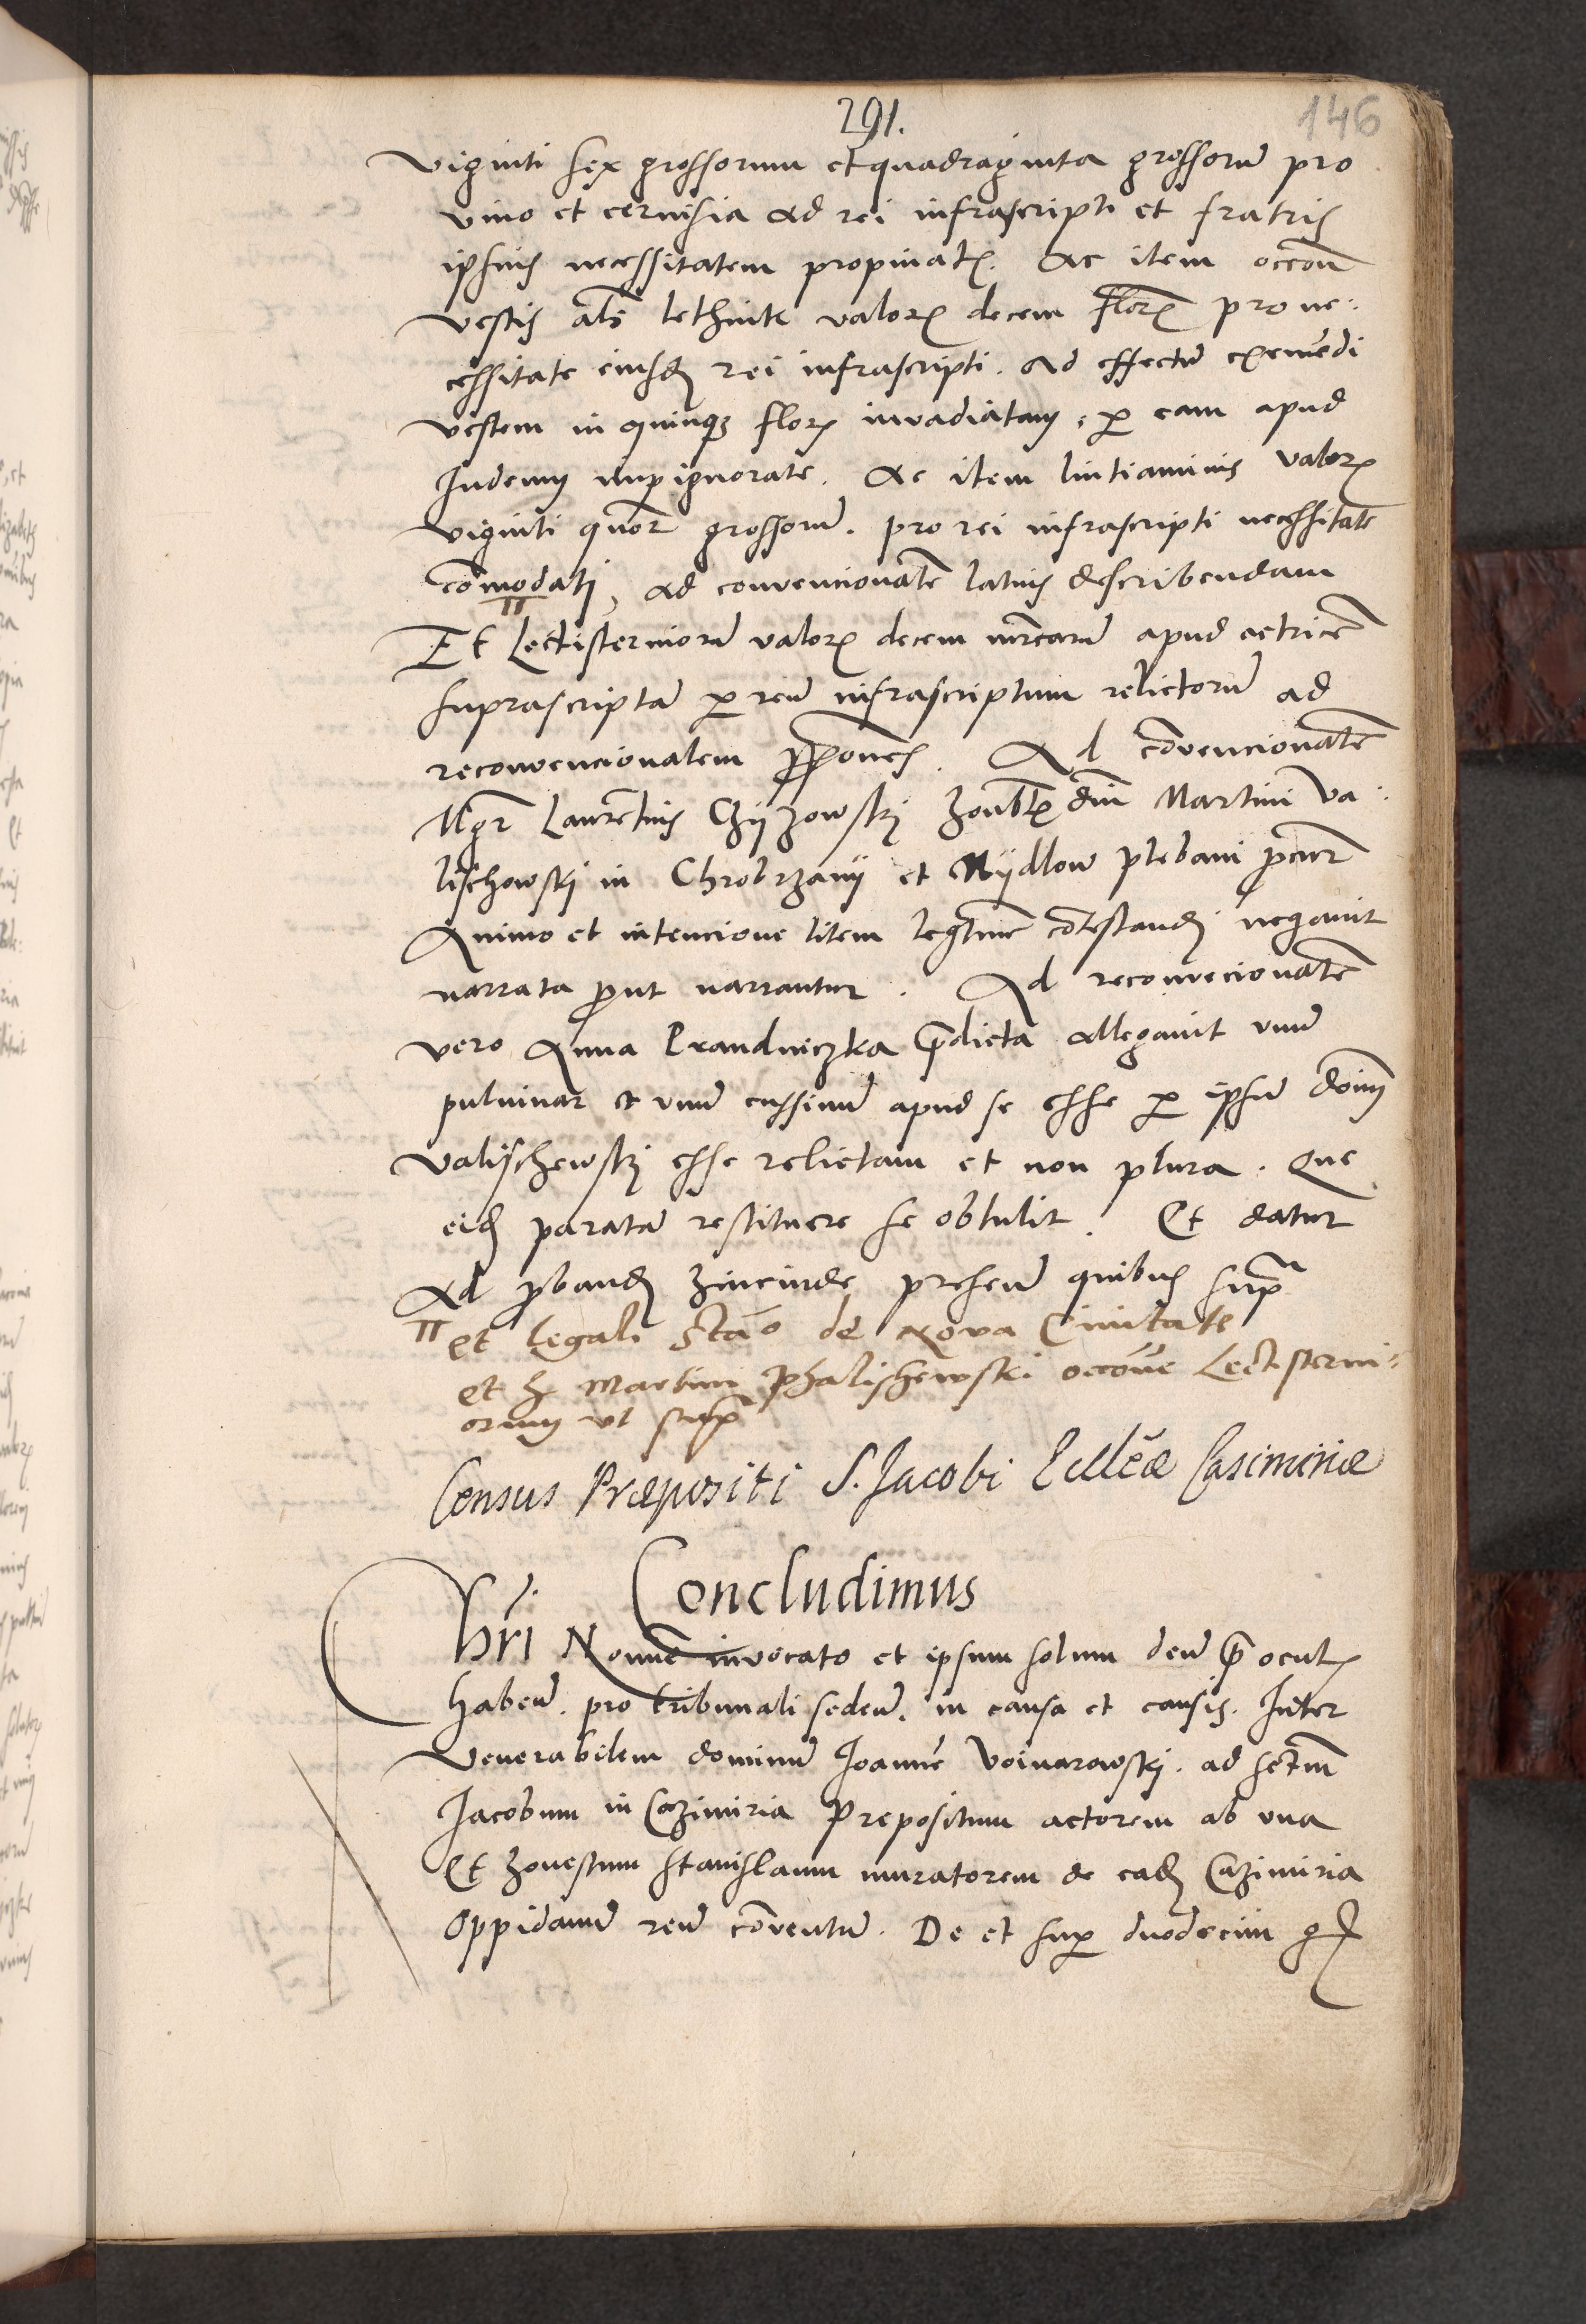 291.
146
viginti sex grossorum et quadraginta grossorū pro
vino et cervisia ad rei infrascripti et fratris
ipsius necessitatem propinatꝭ. Ac item occōn
vestis als lethnik valorꝭ decem florꝭ pro ne⸗
cessitate eiusdꝭ rei infrascripti. Ad effectū exemēdi
vestem in quinqꝫ florꝭ invadiatam, ꝑ eam apud
Iudeum impignorate. Ac item lintiaminis valorꝭ
viginti quor grossorū. pro rei infrascripti necessitate
cōmodati, ad convencionalē latius describendam
Et Lectisterniorū valorꝭ decem mrcarū apud actricē
suprascriptā ꝑ reū infrascriptum relictorū ad
reconvencionalem ꝓpōnes. Ad cōvencionalē
Mgr Laurētius Chyzowskj honbłꝭ dni Martini Va⸗
lischowskj in Chrobrzany et Mydlow plebani ꝓcur
Animo et intencione litem legttime cōtestandj negavit
narrata ꝓut narrantur. Ad reconvēcionalē
vero Anna Prandniczka p̄dicta allegavit unū
pulvinar et unū cussinū apud se esse ꝑ ipsū donū
Valischewskj esse relictam et non plura. Que
eidꝭ paratā restituere se obtulit. Et datur
Ad ꝓbandꝭ hincinde presenū quibus supꝰ
π et legali Stāo de Nova Civitate
et h. Martini Phalischewski occōne Lectisterni⸗
orum ut supꝰ
Census Præpositi S. Jacobi Eccłēæ Casimiriæ
Concludimus
Chri Nomīe invocato et ipsum solum deū p̄ ocułꝭ
habenꝭ. pro tribunali sedenꝭ. in causa et causis. Inter
Venerabilem dominū Joannē Voinarowskj. ad sctm
Jacobum in Cazimiria Prepositum actorem ab una
Et honestum Stanislaum muratorem de eadꝭ Cazimiria
Oppidanū reū cōventū. De et supꝰ duodecim gꝭ